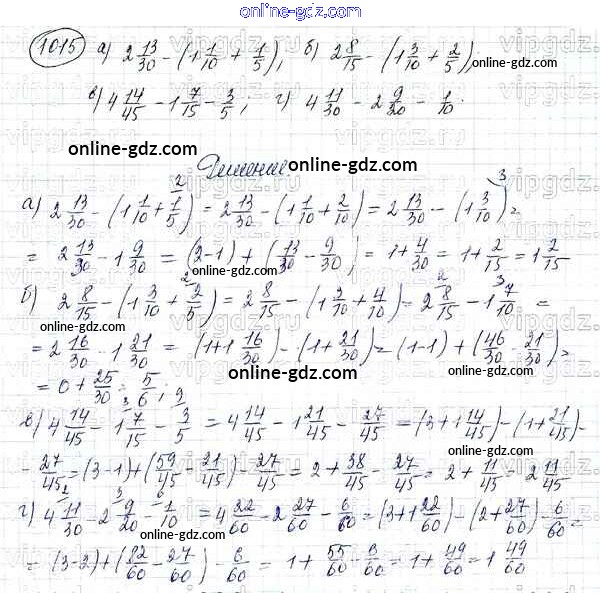 online-gdz.com
1015 а) 2 13/30 − (1 1/10 + 1/5), б) 2 8/15 − (1 3/10 + 2/5),
online-gdz.com
в) 4 14/45 − 1 7/15 − 3/5; г) 4 11/30 − 2 9/20 − 1/10.
online-gdz.com
Решение online-gdz.com
а) 2 13/30 − (1 1/10 + 1/5) = 2 13/30 − (1 1/10 + 2/10) = 2 13/30 − (1 3/10) =
online-gdz.com
= 2 13/30 − 1 9/30 = (2−1) + (13/30 − 9/30) = 1 + 4/30 = 1 + 2/15 = 1 2/15
online-gdz.com
б) 2 8/15 − (1 3/10 + 2/5) = 2 8/15 − (1 3/10 + 4/10) = 2 8/15 − 1 7/10 =
online-gdz.com
= 2 16/30 − 1 21/30 = (1+1 16/30) − (1 + 21/30) = (1−1) + (46/30 − 21/30) =
online-gdz.com
= 0 + 25/30 = 5/6;
online-gdz.com
в) 4 14/45 − 1 7/15 − 3/5 = 4 14/45 − 1 21/45 − 27/45 = (3+1 14/45) − (1 + 21/45) −
online-gdz.com
− 27/45 = (3−1) + (59/45 − 21/45) − 27/45 = 2 + 38/45 − 27/45 = 2 + 11/45 = 2 11/45
online-gdz.com
г) 4 11/30 − 2 9/20 − 1/10 = 4 22/60 − 2 27/60 − 6/60 = (3+1 22/60) − (2 + 27/60) − 6/60 =
online-gdz.com
= (3−2) + (82/60 − 27/60) − 6/60 = 1 + 55/60 − 6/60 = 1 + 49/60 = 1 49/60
online-gdz.com